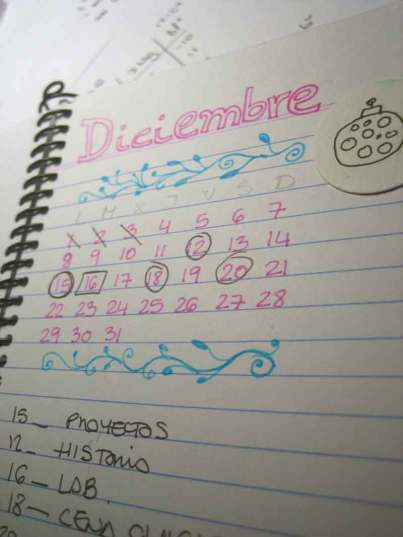 Diciembre
L M X J V S D
1 2 3 4 5 6 7
8 9 10 11 12 13 14
15 16 17 18 19 20 21
22 23 24 25 26 27 28
29 30 31
15 — PROYECTOS
12 — HISTORIA
16 — LAB.
18 — CENA